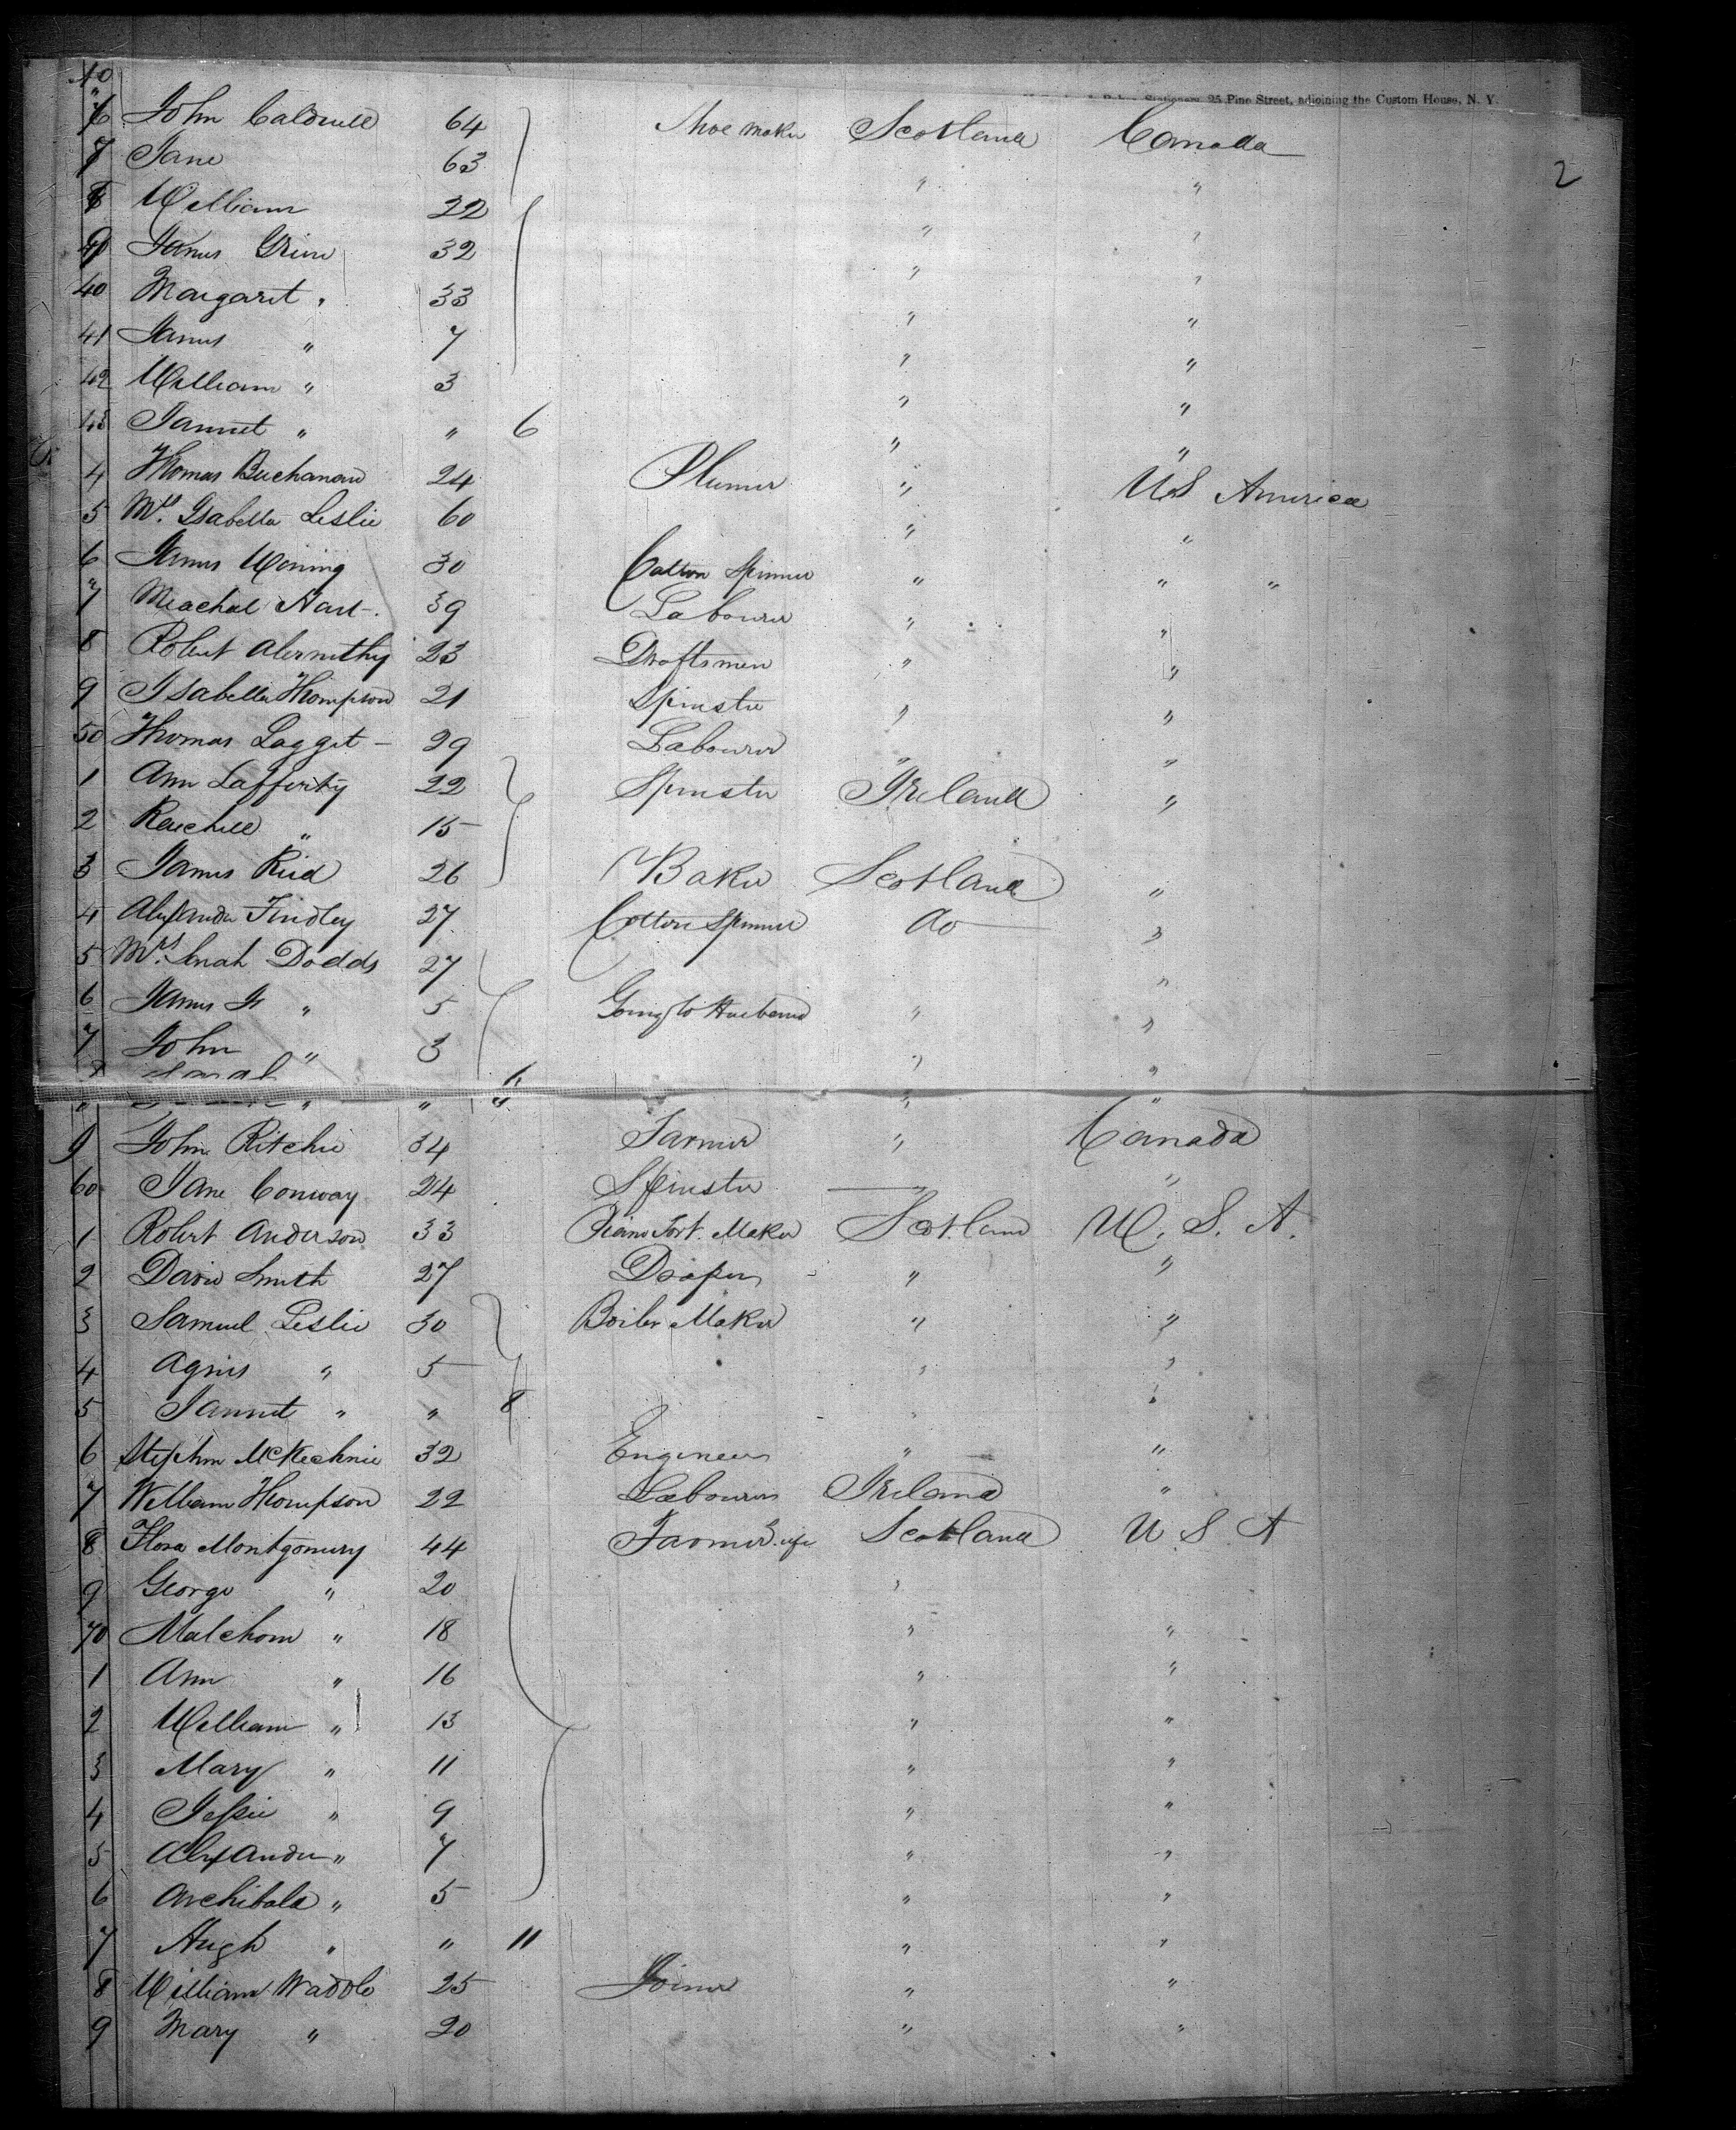 40
25 Pine Street, adjoining the Custom House, N. Y.
6 John Caldwell 64 Shoe Maker Scotland Canada
2
7 Jane 63 " "
8 William 22 " "
9 James Grieve 32 " "
40 Margaret " 33 " "
41 James " 7 " "
42 William " 3 " "
43 Jannet " " 6 " "
4 Thomas Buchanan 24 Plumer " U.S America
5 Mrs. Isabella Leslie 60 " "
6 James 30 Cotton Spinner " " "
7 Meachal Hart 39 Labourer " "
8 Robert Abernethy 23 Draftsman " "
9 Isabella Thompson 21 Spinster " "
50 Thomas Lagget 29 Labourer " "
1 Ann Lafferty 22 Spinster Ireland "
2 Reachell " 15
3 James Reid 26 Baker Scotland "
4 Alexander Findley 27 Cotton Spinner do "
5 Mrs. Dodds 27 "
6 James " 5 Going to Husband " "
7 John " 3 " "
8 Sarah "
" " " "
9 John Ritchie 34 Farmer " Canada
60 Jane Conway 24 Spinster "
1 Robert Anderson 33 Piano Fort. Maker Scotland U. S. A.
2 David Smith 27 Draper " "
3 Samuel Leslie 30 Boiler Maker " "
4 Agnes " 5 " "
5 Jannet " " 8 " "
6 Stephen McKechnie 32 Engineer " "
7 William Thompson 22 Labourer Ireland "
8 Flora Montgomery 44 Farmers wife Scotland U S A
9 George " 20 "
70 Malchom " 18 " "
1 Ann " 16 " "
2 William " 13 " "
3 Mary " 11 " "
4 Jessie " 9 " "
5 Alexander " 7 " "
6 Archibald " 5 " "
7 Hugh " " 11 " "
8 William Waddle 25 Joiner " "
9 Mary " 20 " "